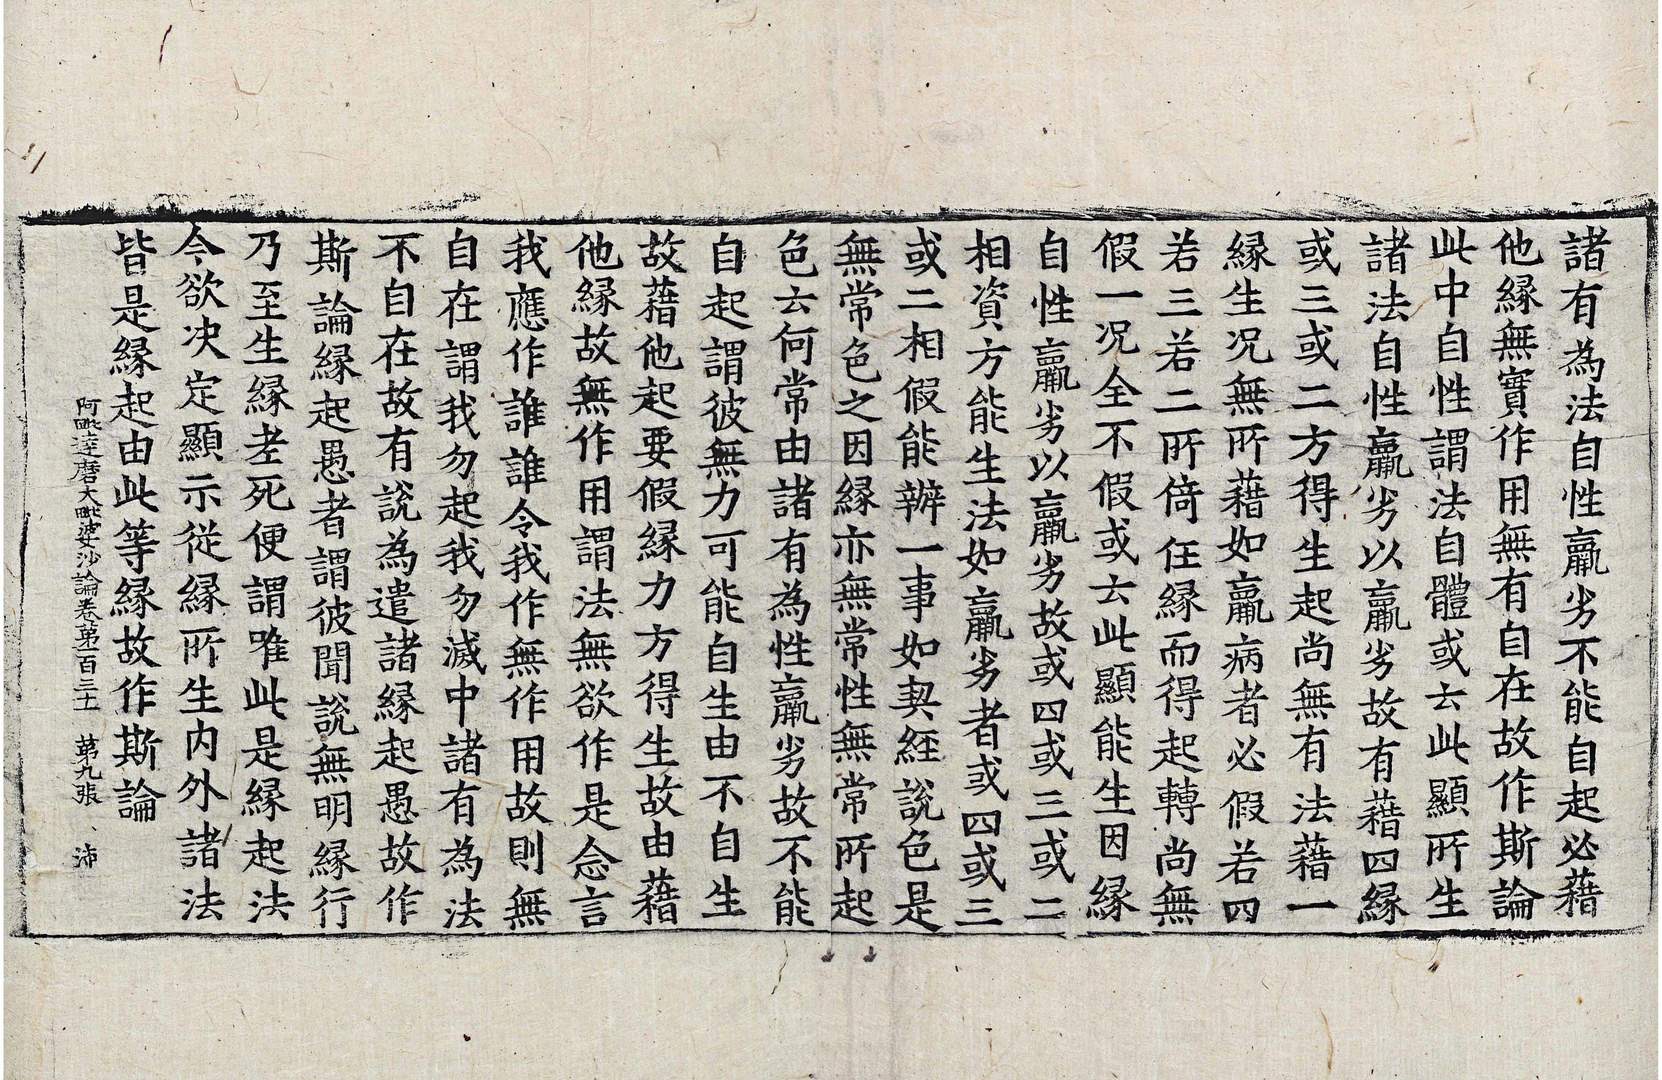 諸有為法自性羸劣不能自起必藉
他緣無實作用無有自在故作斯論
此中自性謂法自體或云此顯所生
諸法自性羸劣以羸劣故有藉四緣
或三或二方得生起尚無有法藉一
緣生況無所藉如羸病者必假若四
若三若二所倚任緣而得起轉尚無
假一況全不假或云此顯能生因緣
自性羸劣以羸劣故或四或三或二
相資方能生法如羸劣者或四或三
或二相假能辦一事如契經說色是
無常色之因緣亦無常性無常所起
色云何常由諸有為性羸劣故不能
自起謂彼無力可能自生由不自生
故藉他起要假緣力方得生故由藉
他緣故無作用謂法無欲作是念言
我應作誰誰令我作無作用故則無
自在謂我勿起我勿滅中諸有為法
不自在故有說為遣諸緣起愚故作
斯論緣起愚者謂彼聞說無明緣行
乃至生緣老死便謂唯此是緣起法
今欲決定顯示從緣所生內外諸法
皆是緣起由此等緣故作斯論
阿毗達磨大毗婆沙論卷第一百三十一 第九張 沛